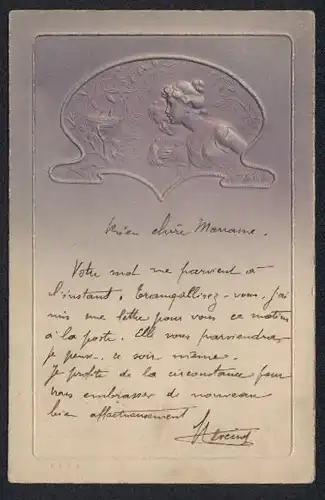 Bien chère Marraine.
Votre mot me parvient à
l'instant. Tranquillisez-vous, j'ai
mis une lettre pour vous ce matin
à la poste. Elle vous parviendra,
je pense, ce soir même.
Je profite de la circonstance pour
vous embrasser de nouveau
bien affectueusement